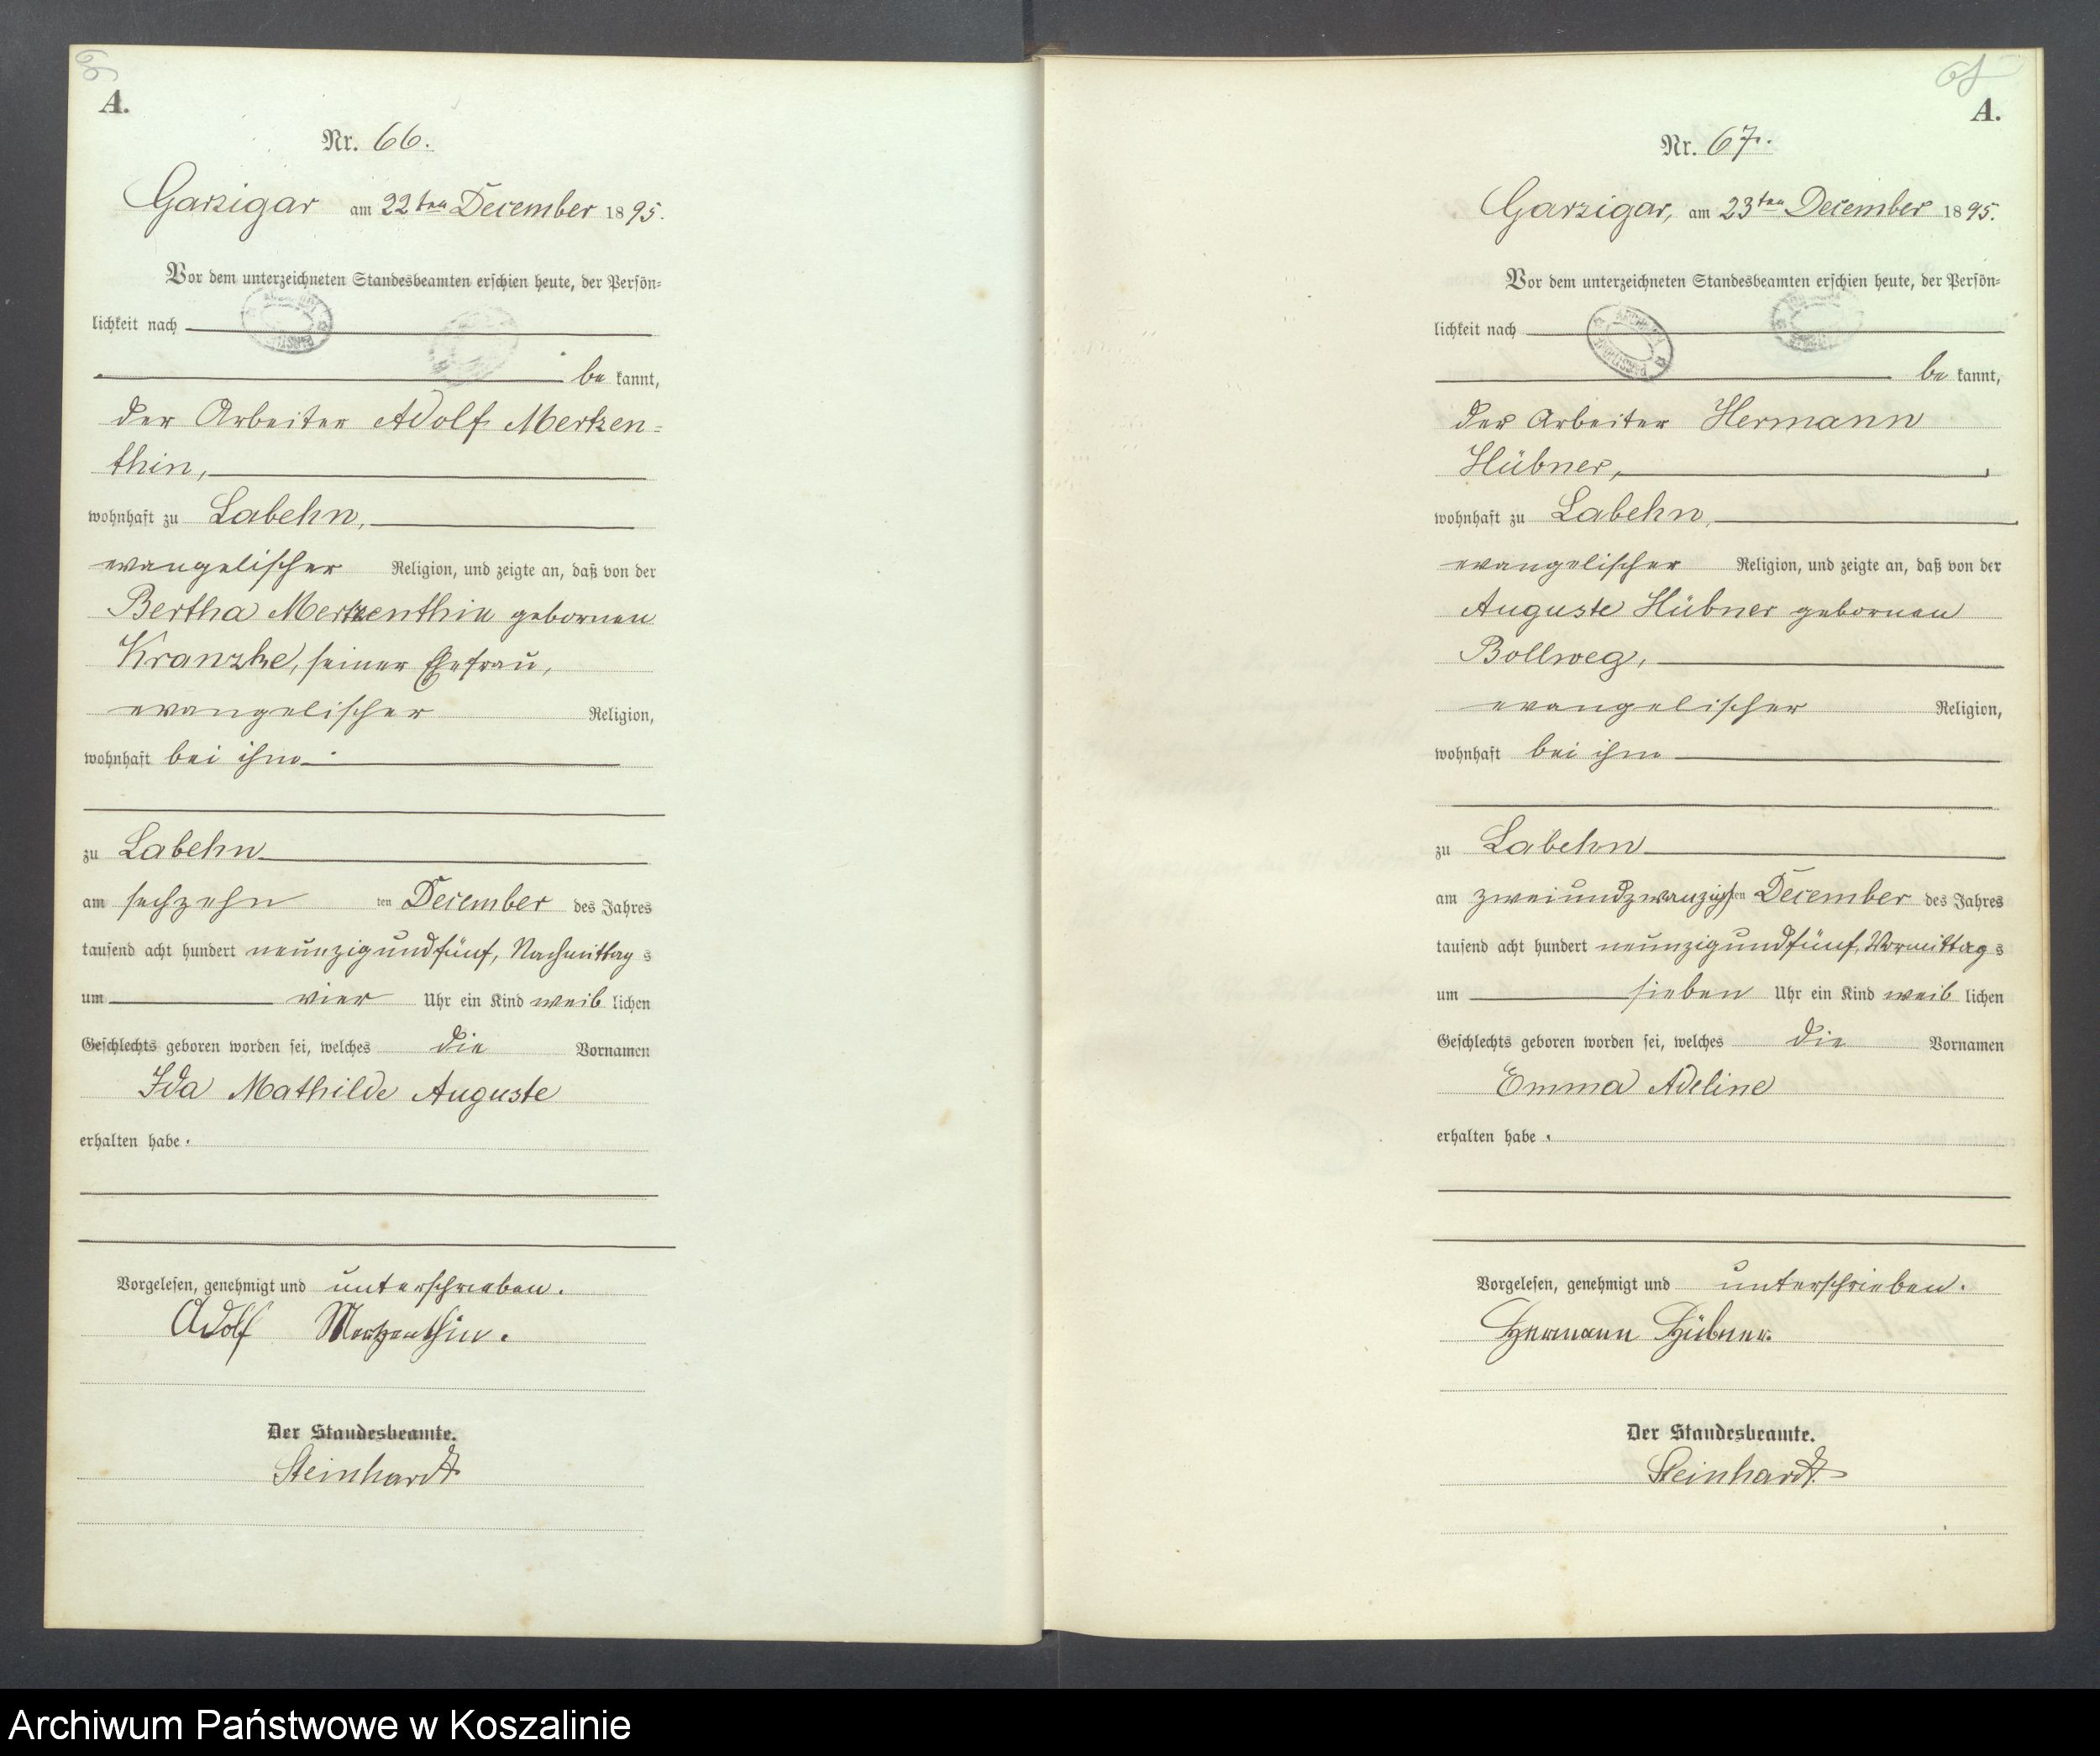 A.
Nr. 66.
Garzigar am 22ten December 1895.
Vor dem unterzeichneten Standesbeamten erschien heute, der Persön=
lichkeit nach
be kannt,
der Arbeiter Adolf Merken=
thin,
wohnhaft zu Labehn,
evangelischer Religion, und zeigte an, daß von der
Bertha Merkenthin gebornen
Kranzke, seiner Ehefrau,
evangelischer Religion,
wohnhaft bei ihm
zu Labehn
am sechzehn ten December des Jahres
tausend acht hundert neunzigundfünf, Nachmittag s
um vier Uhr ein Kind weib lichen
Geschlechts geboren worden sei, welches die Vornamen
Ida Mathilde Auguste
erhalten habe.
Vorgelesen, genehmigt und unterschrieben.
Adolf
Der Standesbeamte.
Steinhardt
A.
Nr. 67.
Garzigar, am 23ten December 1895.
Vor dem unterzeichneten Standesbeamten erschien heute, der Persön=
lichkeit nach
be kannt,
der Arbeiter Hermann
Hübner,
wohnhaft zu Labehn,
evangelischer Religion, und zeigte an, daß von der
Auguste Hübner gebornen
Bollweg,
evangelischer Religion,
wohnhaft bei ihm
zu Labehn
am zweiundzwanzigsten December des Jahres
tausend acht hundert neunzigundfünf, Vormittag s
um sieben Uhr ein Kind weib lichen
Geschlechts geboren worden sei, welches die Vornamen
Emma Adeline
erhalten habe.
Vorgelesen, genehmigt und unterschrieben.
Hermann Hübner.
Der Standesbeamte.
Steinhardt.
Archiwum Państwowe w Koszalinie